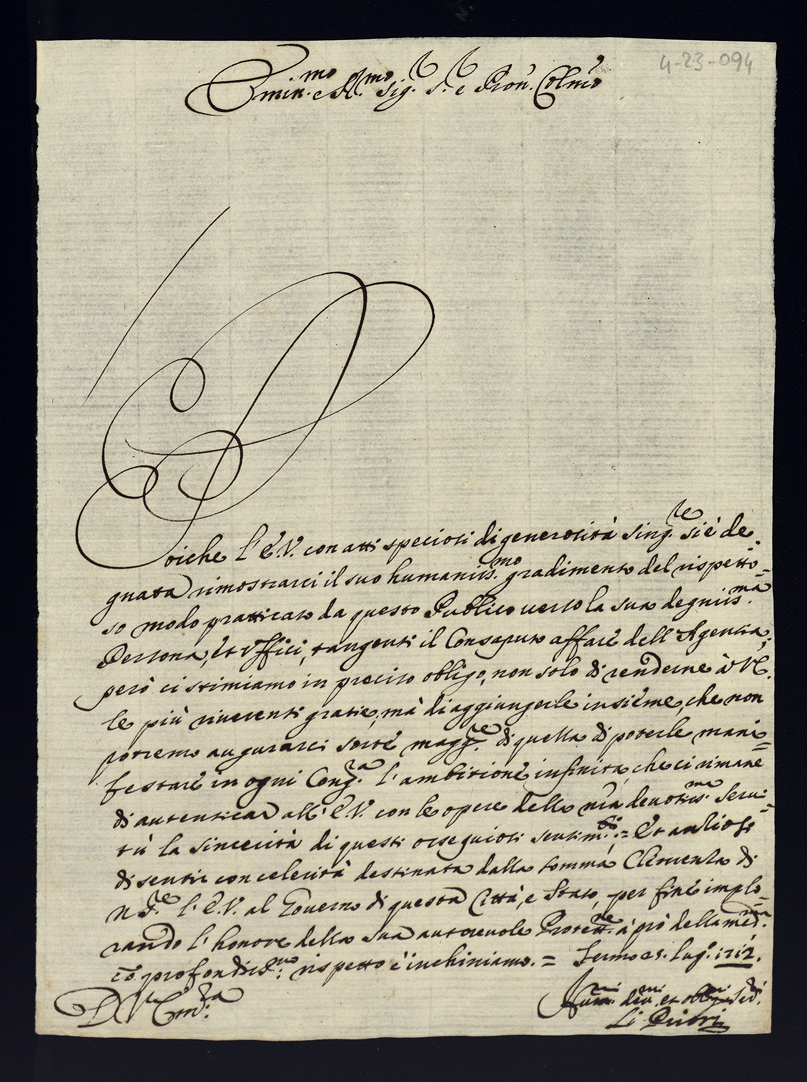 4-23-094
Emin.mo e R.mo Sig.r S.r e Pron. Colmo
Poiche l'E.V. con atti speciosi di generosità sing.re si è de-
gnata rimostrarci il suo humaniss.mo gradimento del rispetto=
so modo pratticato da questo Publico verso la sua degniss.ma
Persona, et Vffici, tangenti il Consaputo affare dell'Agenzia,
però ci stimiamo in preciso obligo, non solo di renderne à V.E.
le più riverenti gratie, mà di aggiungerle insieme, che non
potremo augurarci sorte magg.re di quella di poterle mani=
festare in ogni Cong.ra l'ambitione infinita, che ci rimane
di autenticar all'E.V. con le opere della n'ra devotis.ma Servi=
tù la sincerità di questi ossequiosi sentim.ti = Et ansiosi
di sentir con celerità destinata dalla somma Clemenza di
N. S.re l'E.V. al Governo di questa Città, e Stato, per fine implo=
rando l'honore della sua autorevole Protett.ne à prò della med.ma
co profondiss.mo rispetto c'inchiniamo. = Fermo 23. Lug.o 1712.
D. V. Em.za
Hum.mi dev.mi et obl.mi Ser.i
Li Priori